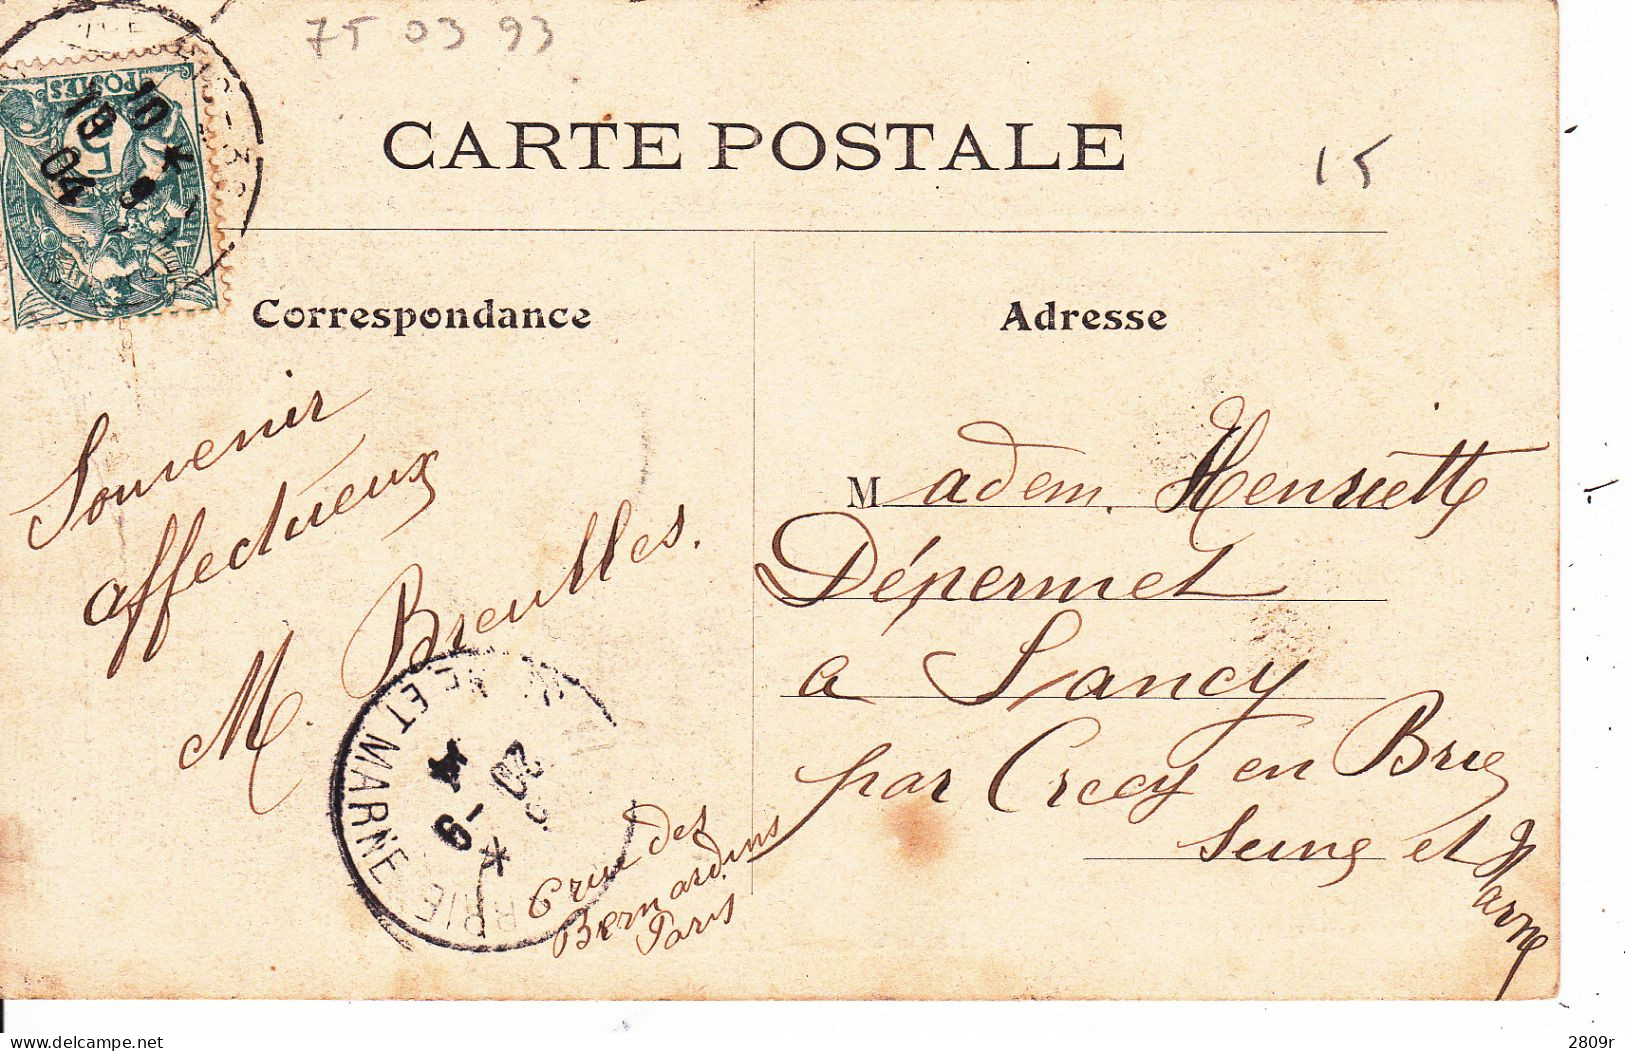 75 03 93
POSTES
5
10 *
19 9
04
CARTE POSTALE
15
Correspondance
Adresse
Souvenir
affectueux
M. Breulles.
6 rue des
Bernardins
Paris
Madem. Henriette
Dépermet
a Sancy
par Crecy en Brie
Seine et Marne
NE ET MARNE
20
-9
*
2809r
delcampe.net